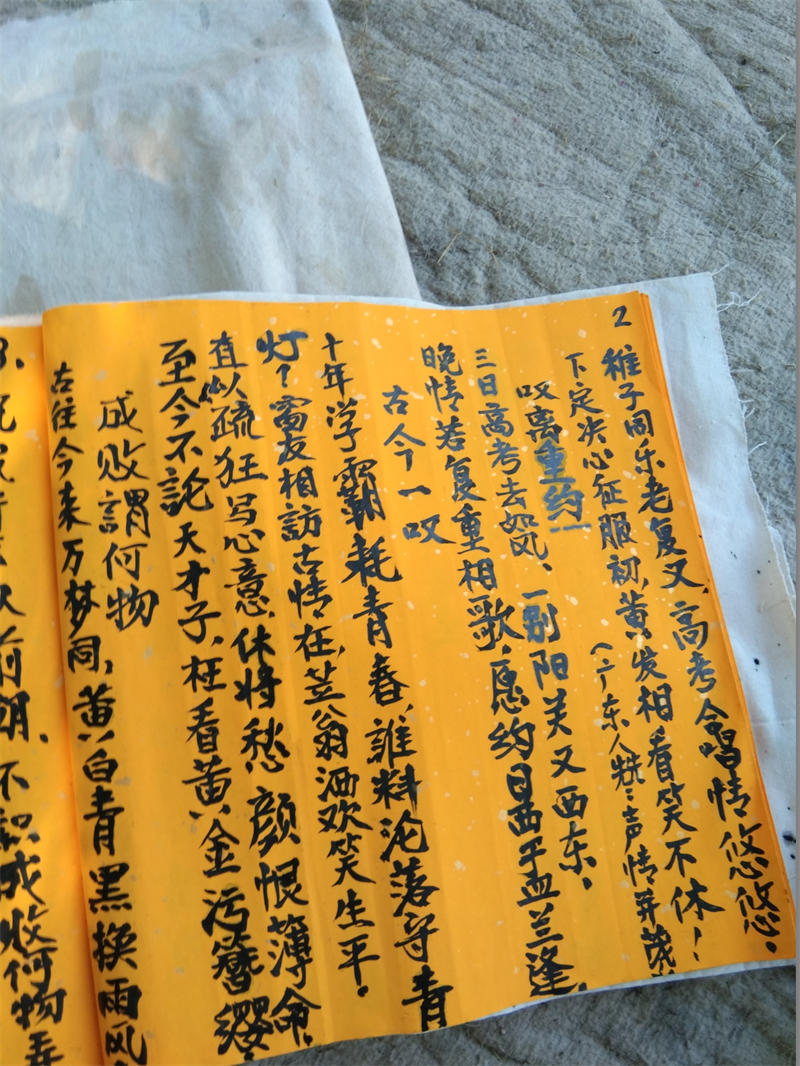 2
稚子同乐老复又,高考合唱情悠悠。
下定决心征服初,黄发相看笑不休!
(广东人 声情并茂
叹离重约
三日高考去如风、一别阳关又西东。
晚情若复重相歌,愿约日西平血兰逢。
古今一叹
十年学霸耗青春,谁料沦落守青
灯?窗友相訪古情在,笠翁洒欢笑生平。
直似疏狂写心意,休将愁颜恨薄命。
至今不託天才子,枉看黄金污簪缨。
成败謂何物
古往今来万梦同,黄白青黑换雨风
3.
前朝、不知成败何物